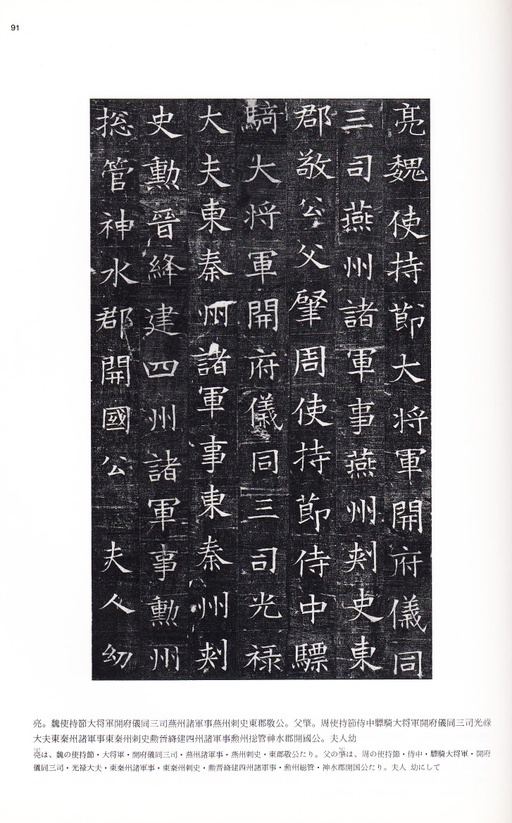 91
亮魏使持節大将軍開府儀同
三司燕州諸軍事燕州刾史東
郡敬公父肇周使持節侍中驃
騎大将軍開府儀同三司光禄
大夫東秦州諸軍事東秦州刾
史勲晉絳建四州諸軍事勲州
捴管神水郡開國公 夫人幼
亮。魏使持節大将軍開府儀同三司燕州諸軍事燕州刺史東郡敬公。父肇。周使持節侍中驃騎大将軍開府儀同三司光祿
大夫東秦州諸軍事東秦州刺史勲晉絳建四州諸軍事勲州捴管神水郡開國公。夫人幼
亮は、魏の使持節・大将軍・開府儀同三司・燕州諸軍事・燕州刺史・東郡敬公たり。父の肇は、周の使持節・侍中・驃騎大将軍・開府
儀同三司・光禄大夫・東秦州諸軍事・東秦州刺史・勲晋絳建四州諸軍事・勲州総管・神水郡開国公たり。夫人 幼にして